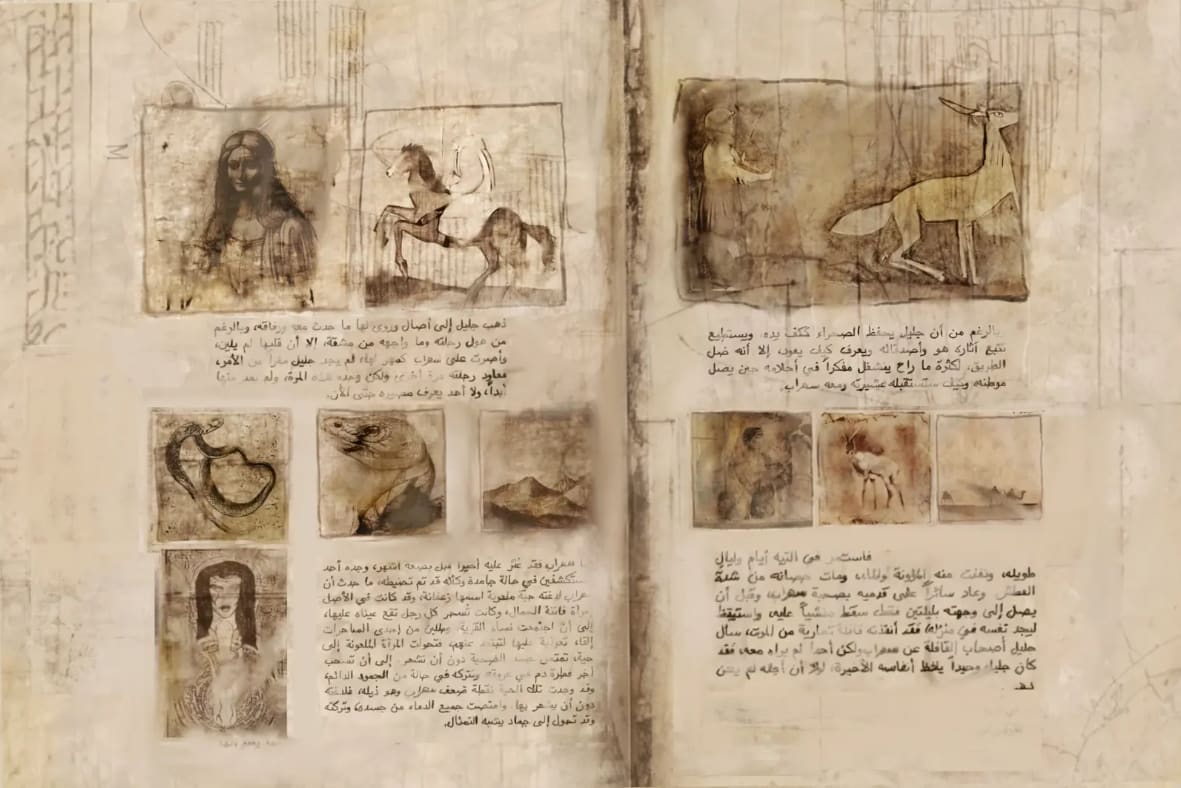 بالرغم من أن جليل يحفظ الصحراء ككف يده، ويستطيع
تتبع آثاره هو وأصدقائه ويعرف كيف يعود، إلا أنه ضل
الطريق، لكثرة ما راح ينشغل مفكراً في أحلامه حين يصل
موطنه، وكيف ستستقبله عشيرته ومعه سهراب.
فاستمر في التيه أيام وليالٍ
طويلة، ونفذت منه المؤونة والماء، ومات حصانه من شدة
العطش، وعاد سائراً على قدميه بصحبة سهراب، وقبل أن
يصل إلى وجهته بليلتين فقط سقط مغشياً عليه، واستيقظ
ليجد نفسه في منزله، فقد أنقذته قافلة تجارية من الموت، سأل
جليل أصحاب القافلة عن سهراب ولكن أحداً لم يراه معه، فقد
كان جليل وحيداً يلفظ أنفاسه الأخيرة، لولا أن أجله لم يحن
بعد.
M
ذهب جليل إلى أصال وروى لها ما حدث معه ورفاقه، وبالرغم
من هول رحلته وما واجهه من مشقة، إلا أن قلبها لم يلين،
وأصرت على سهراب كمهر لها، لم يجد جليل مفراً من الأمر،
فعاود رحلته مرة أخرى ولكن وحده هذه المرة، ولم يعد منها
أبداً، ولا أحد يعرف مصيره حتى الآن.
أما سهراب فقد عُثر عليه أخيراً قبل بضعة أشهر، وجده أحد
المستكشفين في حالة جامدة وكأنه قد تم تحنيطه، ما حدث أن
سهراب لدغته حية ملعونة اسمها زعفانة، وقد كانت في الأصل
امرأة فاتنة الجمال، وكانت تُسحر كل رجل تقع عيناه عليها،
إلى أن اجتمعت نساء القرية، وطلبن من إحدى الساحرات
إلقاء تعويذة عليها لتبتعد عنهم، فتحولت المرأة الملعونة إلى
حية، تمتص جسد الضحية دون أن تشعر، إلى أن تسحب
آخر قطرة دم في عروقه وتتركه في حالة من الجمود الدائم،
وقد وجدت تلك الحية نقطة ضعف سهراب وهو ذيله، فلدغته
دون أن يشعر بها، وامتصت جميع الدماء من جسده، وتركته
وقد تحول إلى جماد يشبه التمثال.